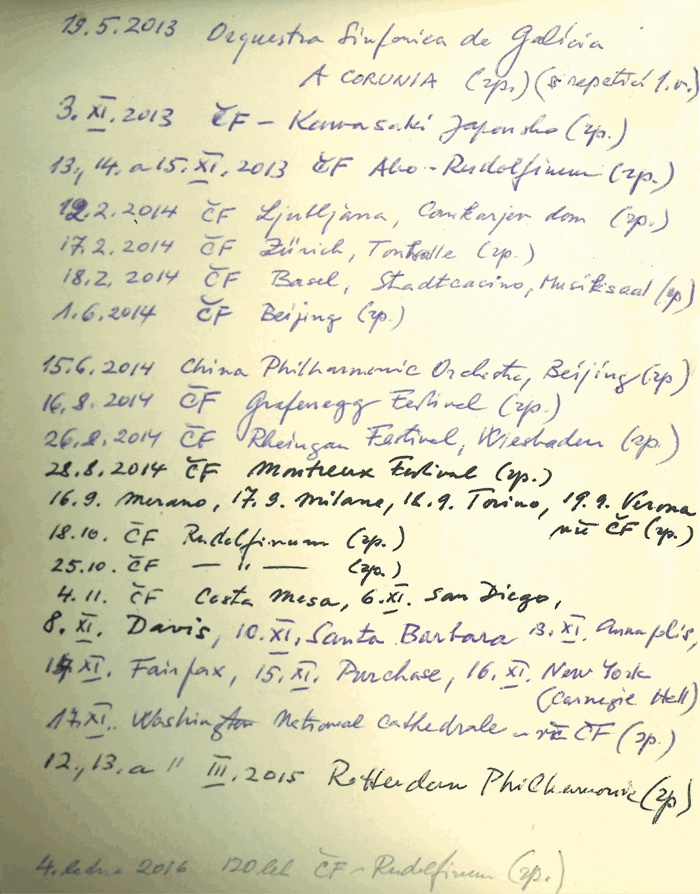 19.5.2013 Orquestra Sinfonica de Galícia
A CORUNIA (zp.) (s repeticí 1.v.)
3. XI. 2013 ČF – Kawasaki Japonsko (zp.)
13., 14. a 15. XI. 2013 ČF Abo - Rudolfinum (zp.)
12.2.2014 ČF Ljubljana, Cankarjev dom (zp.)
17.2.2014 ČF Zürich, Tonhalle (zp.)
18.2.2014 ČF Basel, Stadtcasino, Musiksaal (zp)
1.6.2014 ČF Beijing (zp.)
15.6.2014 China Philharmonic Orchestra, Beijing (zp)
16.8.2014 ČF Grafenegg Festival (zp.)
26.8.2014 ČF Rheingau Festival, Wiesbaden (zp.)
28.8.2014 ČF Montreux Festival (zp.)
16.9. Merano, 17.9. Milano, 18.9. Torino, 19.9. Verona
vše ČF (zp.)
18.10. ČF Rudolfinum (zp.)
25.10. ČF — " — (zp.)
4.11. ČF Costa Mesa, 6.XI. San Diego,
8. XI. Davis, 10.XI. Santa Barbara 13.XI. Annapolis,
14.XI. Fairfax, 15.XI. Purchase, 16.XI. New York
(Carnegie Hall)
17.XI. Washington National Cathedrale – vše ČF (zp.)
12., 13. a " III. 2015 Rotterdam Philharmonic (zp)
4. ledna 2016 120 let ČF - Rudolfinum (zp.)